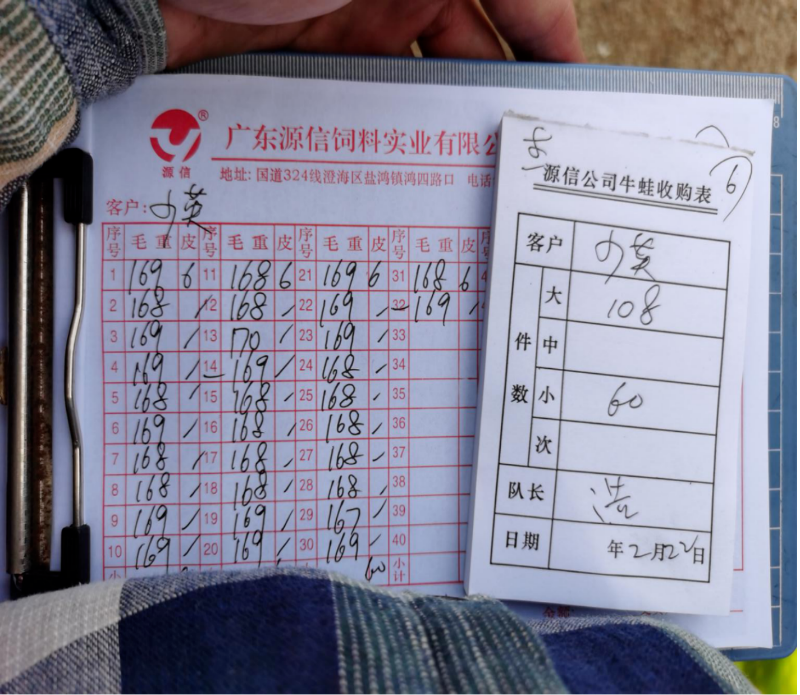 ®
源信
广东源信饲料实业有限公
地址: 国道324线澄海区盐鸿镇鸿四路口 电话
客户: 小英
序号 毛重 皮 序号 毛重 皮 序号 毛重 皮 序号 毛重 皮 序号
1 169 6 11 168 6 21 169 6 31 168 6 4
2 168 / 12 168 / 22 169 / 32 169 /
3 169 / 13 170 / 23 169 / 33
4 169 / 14 169 / 24 168 / 34
5 168 / 15 168 / 25 168 / 35
6 169 / 16 168 / 26 168 / 36
7 168 / 17 168 / 27 168 / 37
8 168 / 18 168 / 28 168 / 38
9 169 / 19 169 / 29 167 / 39
10 169 / 20 169 / 30 169 / 40
小 60 小计
源信公司牛蛙收购表
6
客户 小英
件数
大 108
中
小 60
次
队长 浩
日期 年2月22日
8